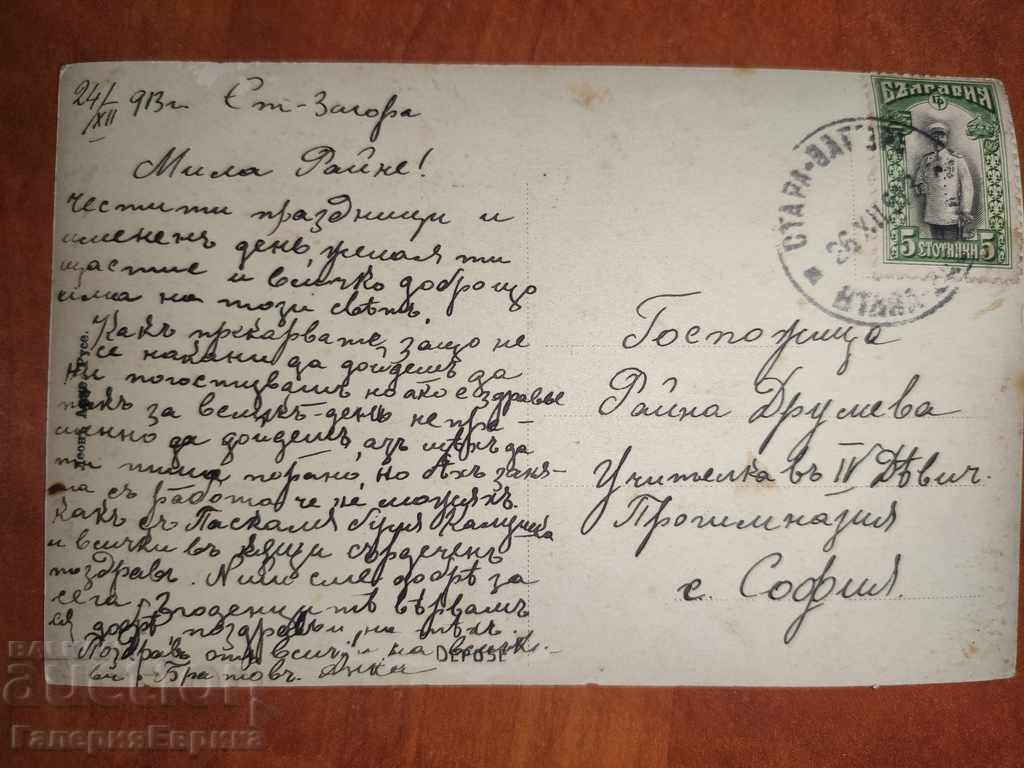 24/XII 913 г. Ст-Загора
Мила Райне!
Честити праздници и
имененъ день, желая ти
щастие и всичко добро що
има на този свѣтъ.
Какъ прекарвате, защо не
се накани да дойдешъ да
ни погостувашъ но ако е здравье
пакъ за великъ-день непре-
мѣнно да дойдешъ, азъ щѣхъ да
ти пиша порано, но бѣхъ заня-
та съ работа че не можахъ.
Какъ съ Паскаля
и всички въ кѫщи сърдеченъ
поздравъ. Ний сме добрѣ за
сега. Згоденицитѣ вѣрвамъ
сѫ добрѣ поздрави на тѣхъ
Поздравъ отъ всички на всички
Анка
БЪЛГАРИЯ
5 СТОТИНКИ 5
СТАРА-ЗАГОРА
26 XII
Госпожица
Райна Друмева
Учителка въ IV Дѣвич.
Прогимназия
с. София.
DEPOSE
Русе.
BALKAN
auction
ГалерияЕврика